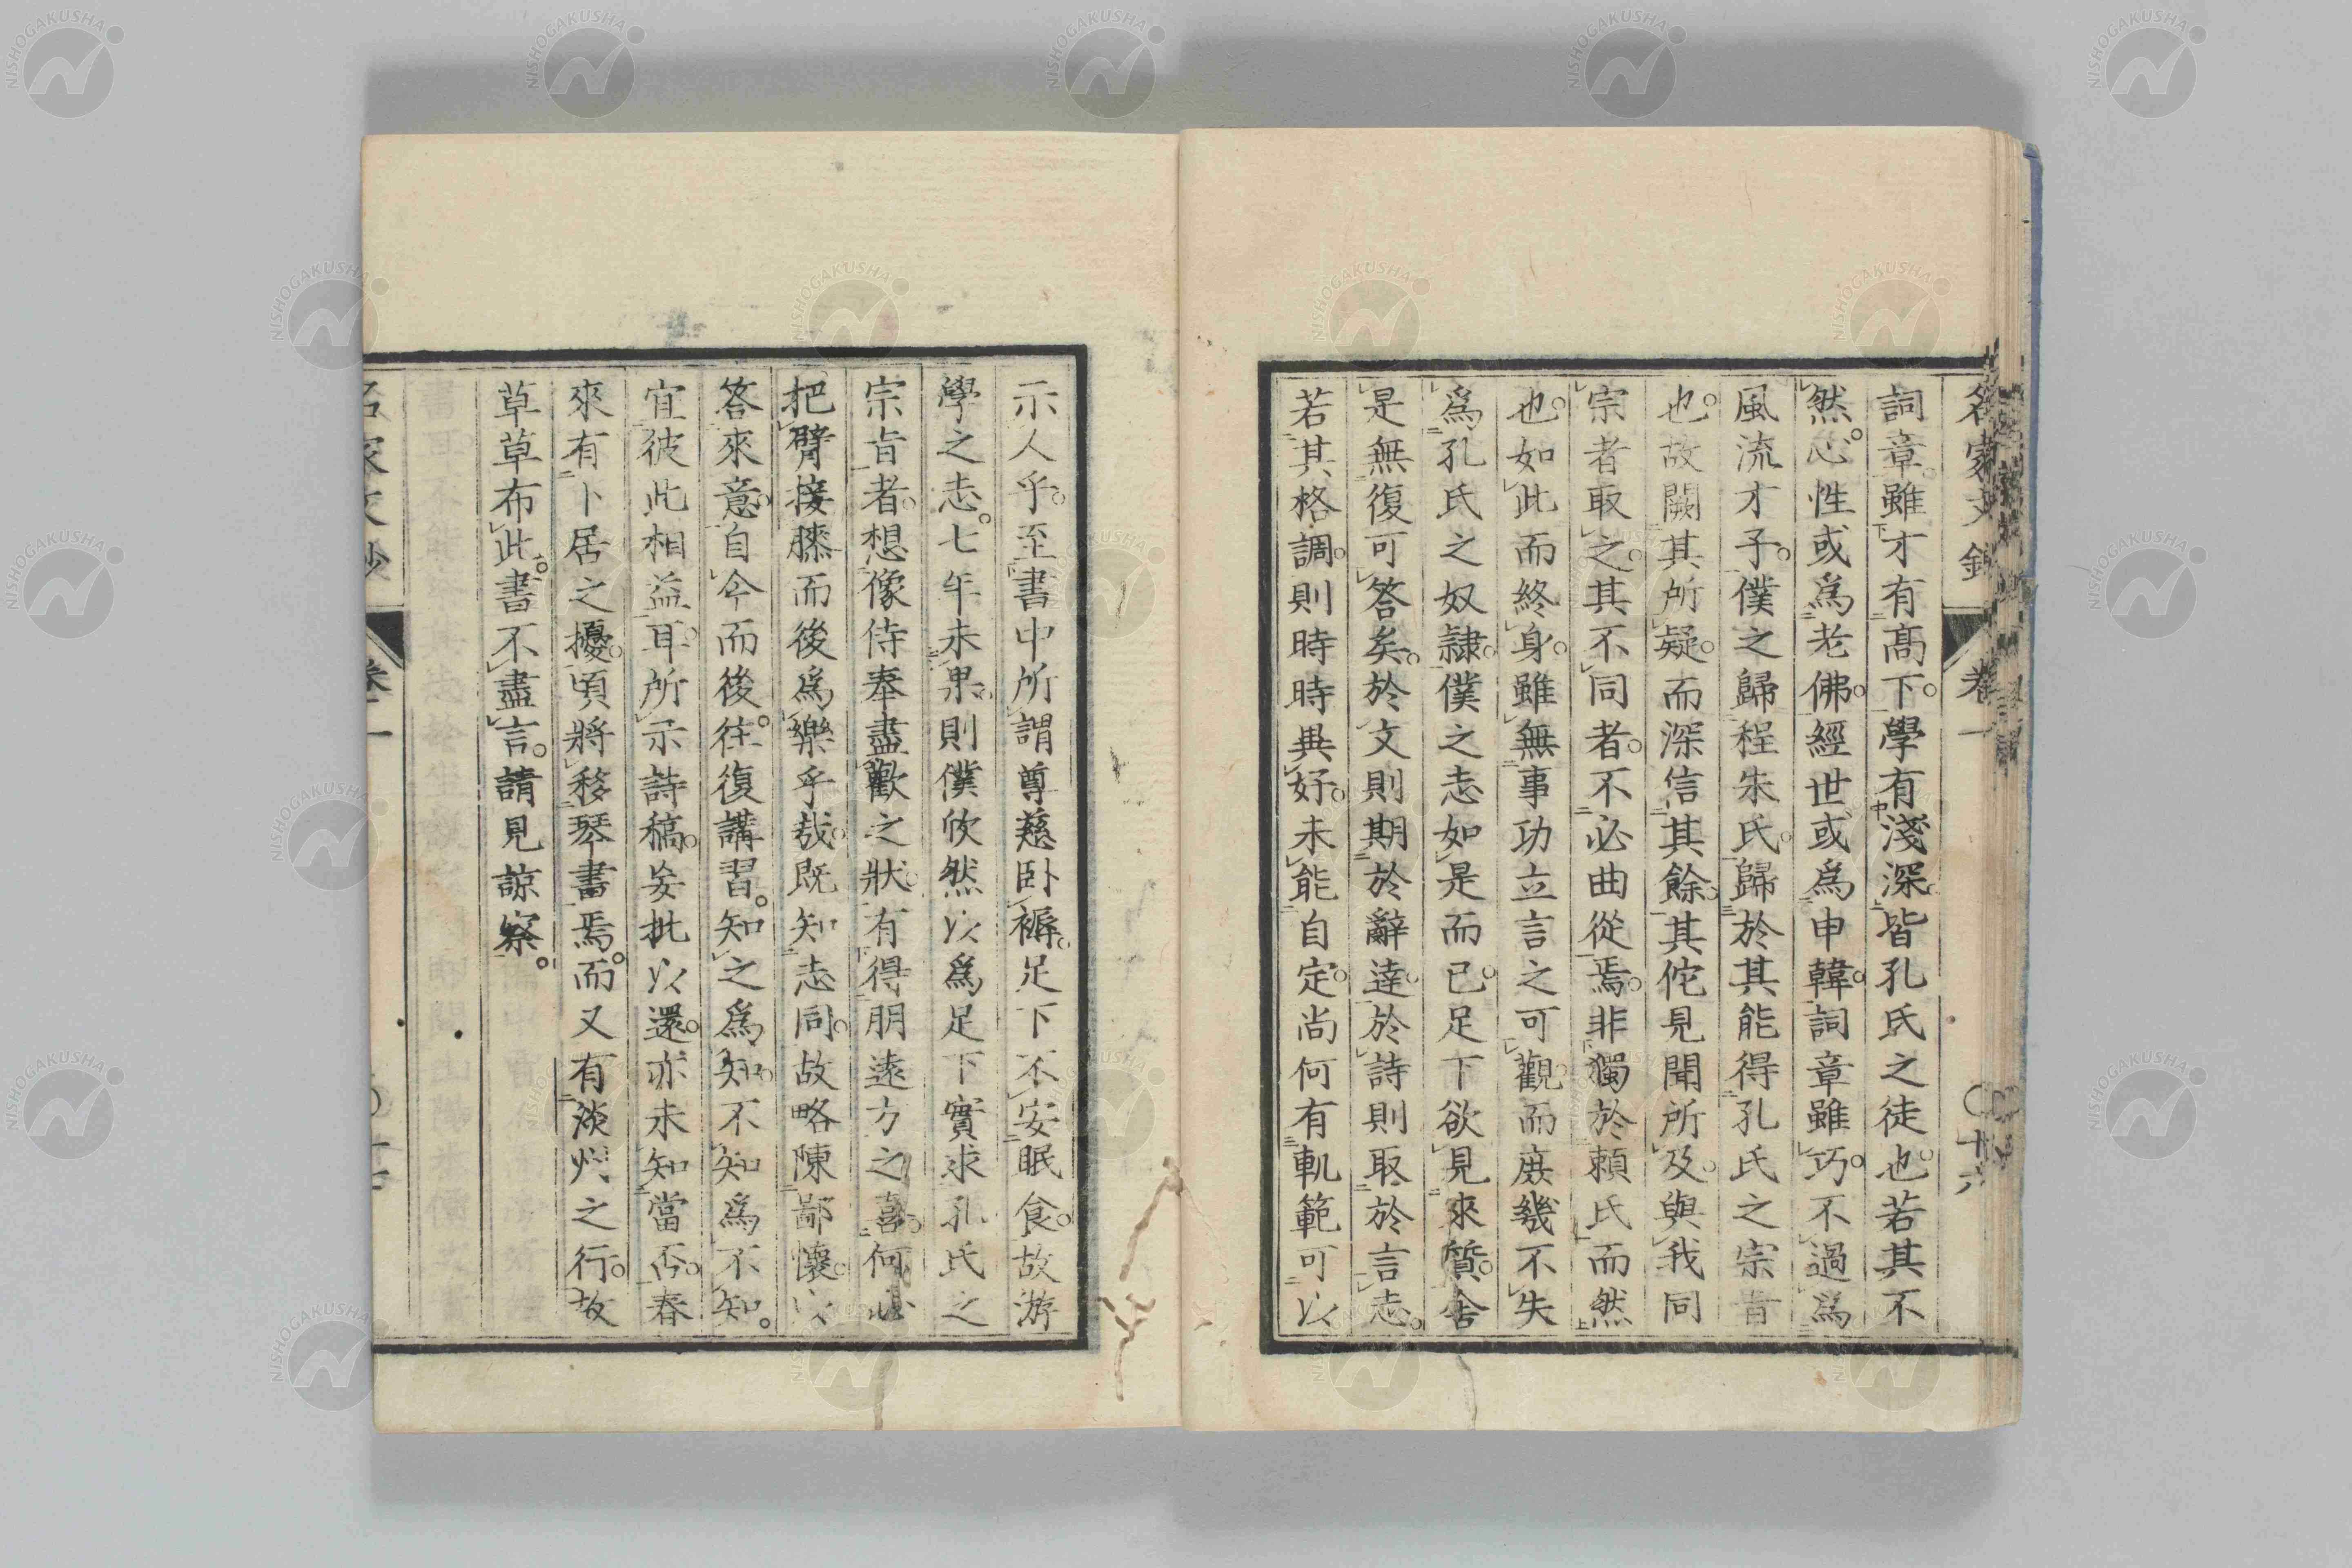 名家文鈔 卷一 十六
詞章。雖才有高下。學有淺深。皆孔氏之徒也。若其不
然。心性或爲老佛。經世或爲申韓。詞章雖巧。不過爲
風流才子。僕之歸程朱氏。歸於其能得孔氏之宗旨
也。故闕其所疑。而深信其餘。其佗見聞所及。與我同
宗者取之。其不同者。不必曲從焉。非獨於頼氏而然
也。如此而終身。雖無事功立言之可觀。而庶幾不失
爲孔氏之奴隷。僕之志如是而已。足下欲見來質。舍
是無復可答矣。於文則期於辭達。於詩則取於言志。
若其格調。則時時異好。未能自定。尚何有軌範可以
示人乎。至書中所謂尊慈卧褥。足下不安眠食。故游
學之志。七年未果。則僕欣然以爲足下實求孔氏之
宗旨者。想像侍奉盡歡之狀。有得朋遠方之喜。何必
把臂接膝而後爲樂乎哉。既知志同。故略陳鄙懷。以
答來意。自今而後。往復講習。知之爲知。不知爲不知。
宜彼此相益耳。所示詩稿。妄批以還。亦未知當否。春
來有卜居之擾。頃將移琴書焉。而又有淡州之行。故
草草布此。書不盡言。請見諒察。
名家文鈔 卷一